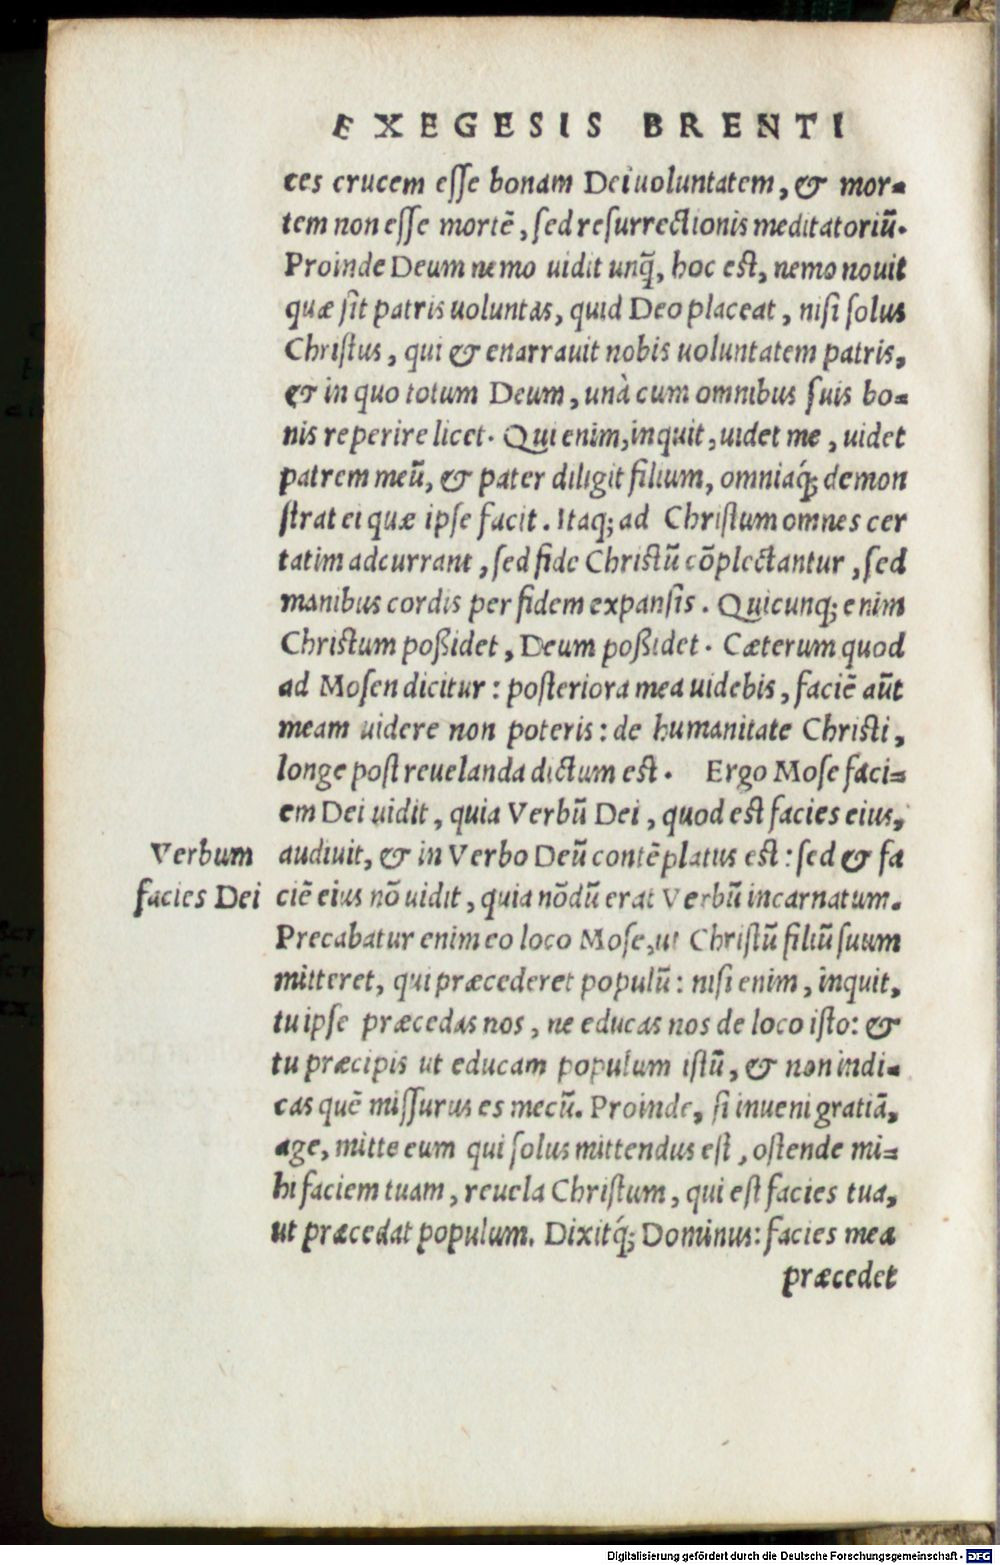 EXEGESIS BRENTI
ces crucem esse bonam Dei uoluntatem, & mor=
tem non esse mortē, sed resurrectionis meditatoriū.
Proinde Deum nemo uidit unq̃, hoc est, nemo nouit
quæ sit patris uoluntas, quid Deo placeat, nisi solus
Christus, qui & enarrauit nobis uoluntatem patris,
& in quo totum Deum, unà cum omnibus suis bo=
nis reperire licet. Qui enim, inquit, uidet me, uidet
patrem meũ, & pater diligit filium, omniaq́; demon
strat ei quæ ipse facit. Itaq; ad Christum omnes cer
tatim adcurrant, sed fide Christũ cōplectantur, sed
manibus cordis per fidem expansis. Quicunq; enim
Christum poßidet, Deum poßidet. Cæterum quod
ad Mosen dicitur: posteriora mea uidebis, faciē aũt
meam uidere non poteris: de humanitate Christi,
longe post reuelanda dictum est. Ergo Mose faci=
em Dei uidit, quia Verbũ Dei, quod est facies eius,
Verbum facies Dei
audiuit, & in Verbo Deũ contēplatus est: sed & fa
ciē eius nō uidit, quia nōdũ erat Verbũ incarnatum.
Precabatur enim eo loco Mose, ut Christũ filiũ suum
mitteret, qui præcederet populũ: nisi enim, inquit,
tu ipse præcedas nos, ne educas nos de loco isto: &
tu præcipis ut educam populum istũ, & non indi=
cas quē missurus es mecũ. Proinde, si inueni gratiã,
age, mitte eum qui solus mittendus est, ostende mi=
hi faciem tuam, reuela Christum, qui est facies tua,
ut præcedat populum. Dixitq́; Dominus: facies mea
præcedet
Digitalisierung gefördert durch die Deutsche Forschungsgemeinschaft - DFG